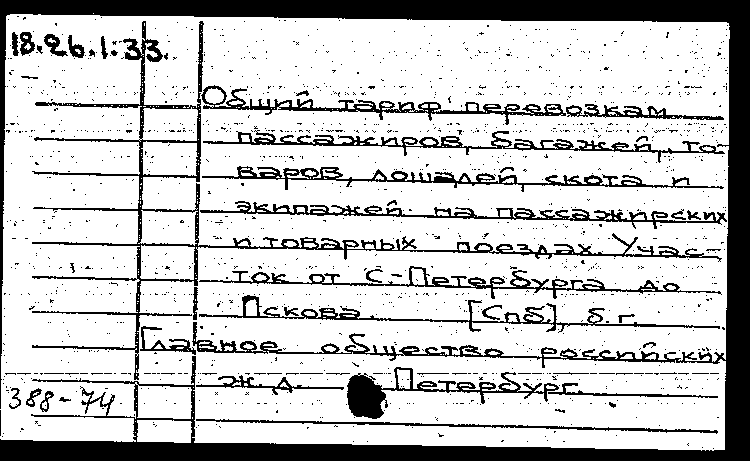 18.26.1.33.
Общий тариф перевозкам
пассажиров, багажей, то-
варов, лошадей, скота и
экипажей на пассажирских
и товарных поездах. Учас-
ток от С.-Петербурга до
Пскова. [Спб.], б.г.
Главное общество российских
ж.д. Петербург.
388-74